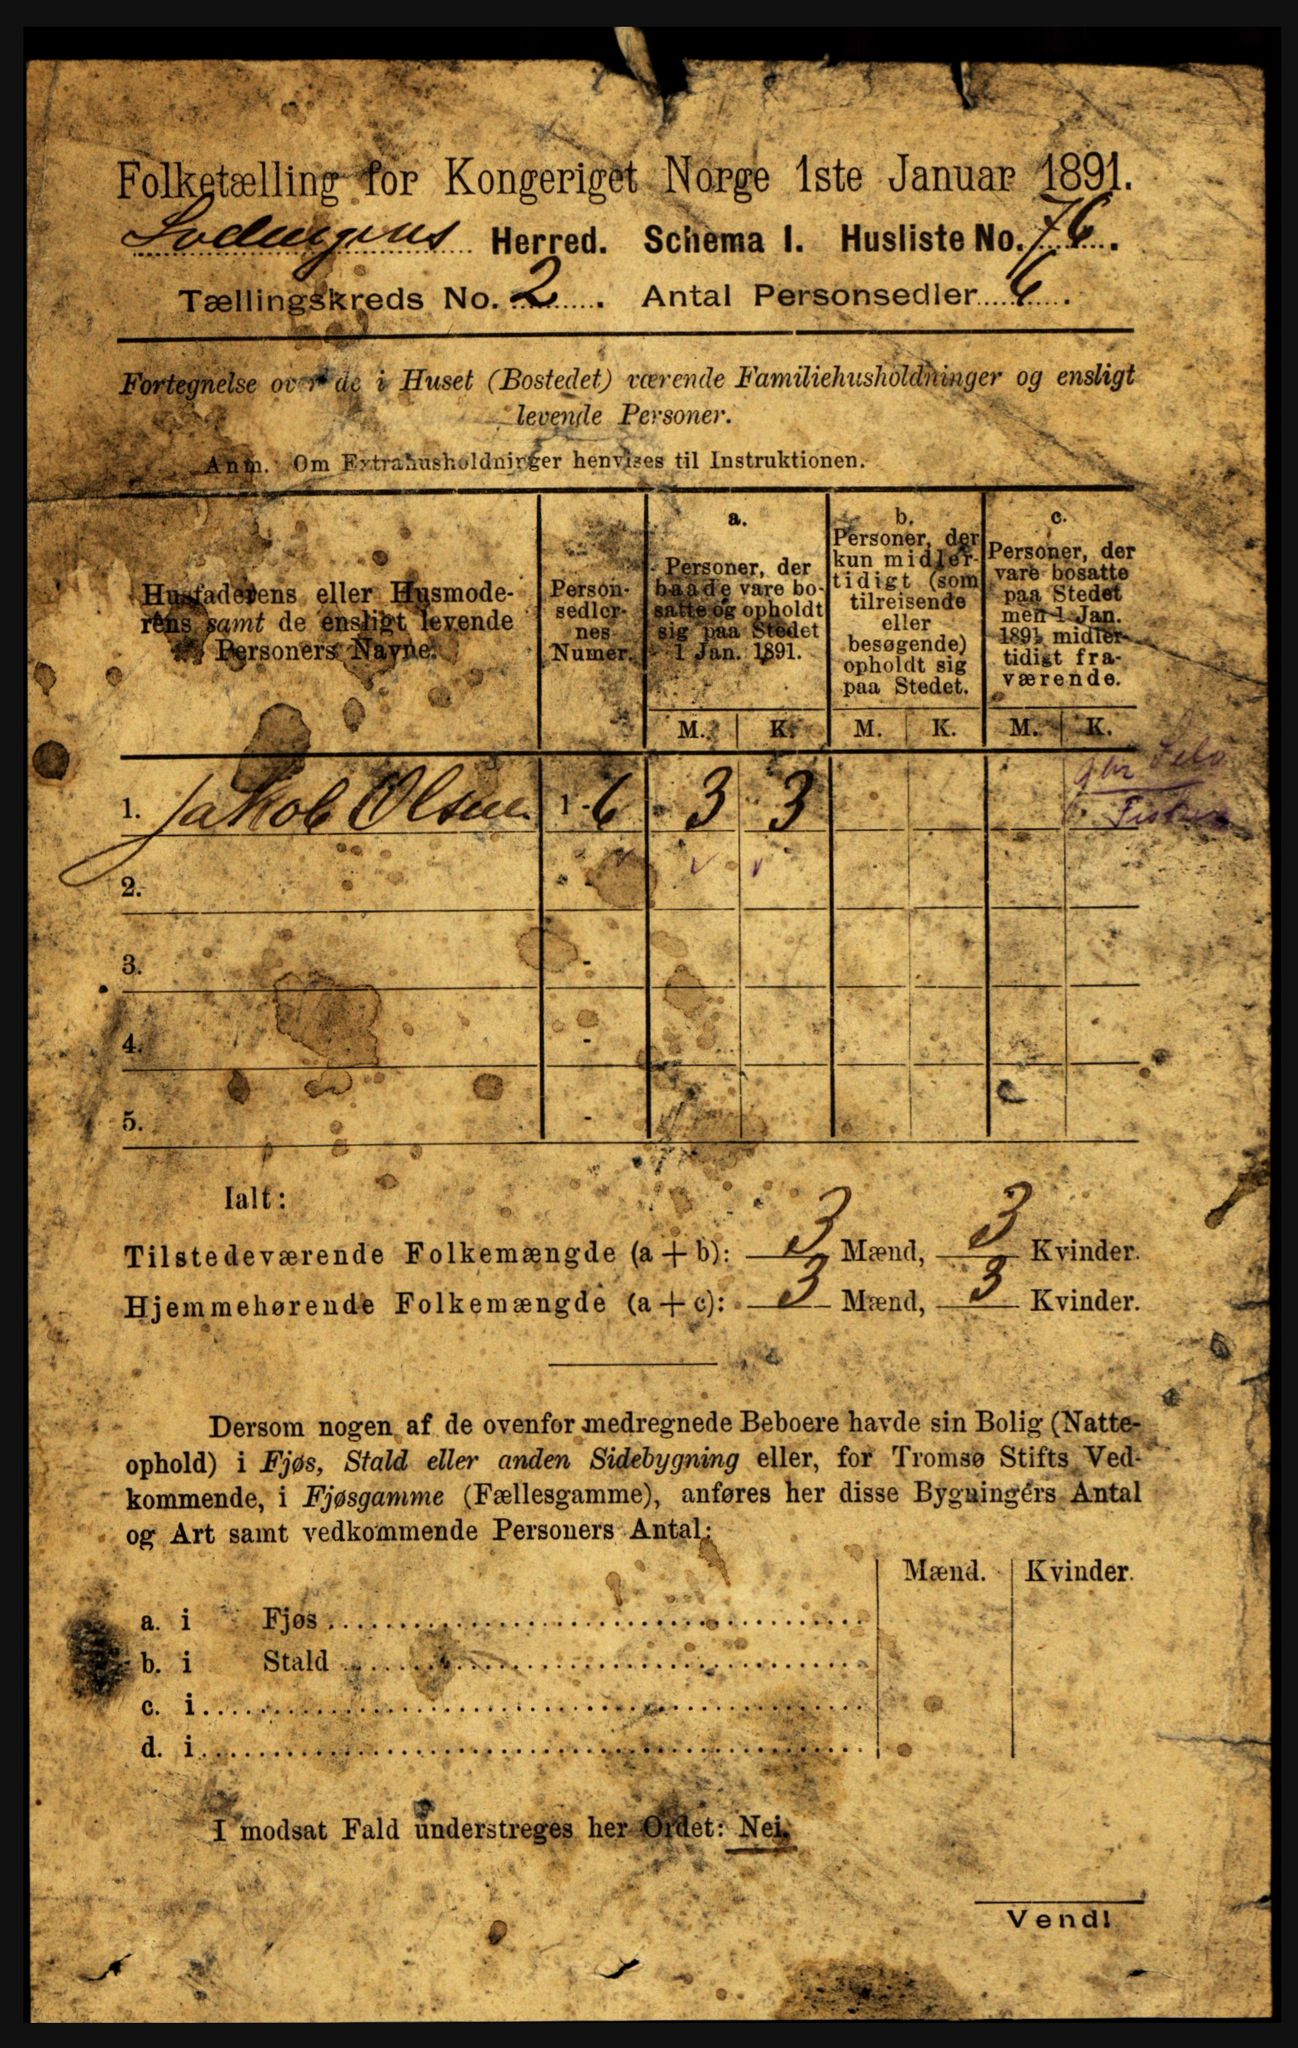 Folketælling for Kongeriget Norge 1ste Januar 1891.
Lødingens Herred. Schema I. Husliste No. 76.
Tællingskreds No. 2. Antal Personsedler 6.
Fortegnelse over de i Huset (Bostedet) værende Familiehusholdninger og ensligt
levende Personer.
Anm. Om Extrahusholdninger henvises til Instruktionen.
Husfaderens eller Husmode-
rens samt de ensligt levende
Personers Navne.
Person-
sedler-
nes
Numer.
a.
Personer, der
baade vare bo-
satte og opholdt
sig paa Stedet
1 Jan. 1891.
b.
Personer, der
kun midler-
tidigt (som
tilreisende
eller
besøgende)
opholdt sig
paa Stedet.
c.
Personer, der
vare bosatte
paa Stedet
men 1 Jan.
1891 midler-
tidigt fra-
værende.
M. K. M. K. M. K.
1. Jakob Olsen 1 - 6 3 3
2. -
3. -
4. -
5. -
Ialt:
Tilstedeværende Folkemængde (a + b): 3 Mænd, 3 Kvinder.
Hjemmehørende Folkemængde (a + c): 3 Mænd, 3 Kvinder.
Dersom nogen af de ovenfor medregnede Beboere havde sin Bolig (Natte-
ophold) i Fjøs, Stald eller anden Sidebygning eller, for Tromsø Stifts Ved-
kommende, i Fjøsgamme (Fællesgamme), anføres her disse Bygningers Antal
og Art samt vedkommende Personers Antal:
Mænd. Kvinder.
a. i Fjøs
b. i Stald
c. i
d. i
I modsat Fald understreges her Ordet: Nei.
Vend!